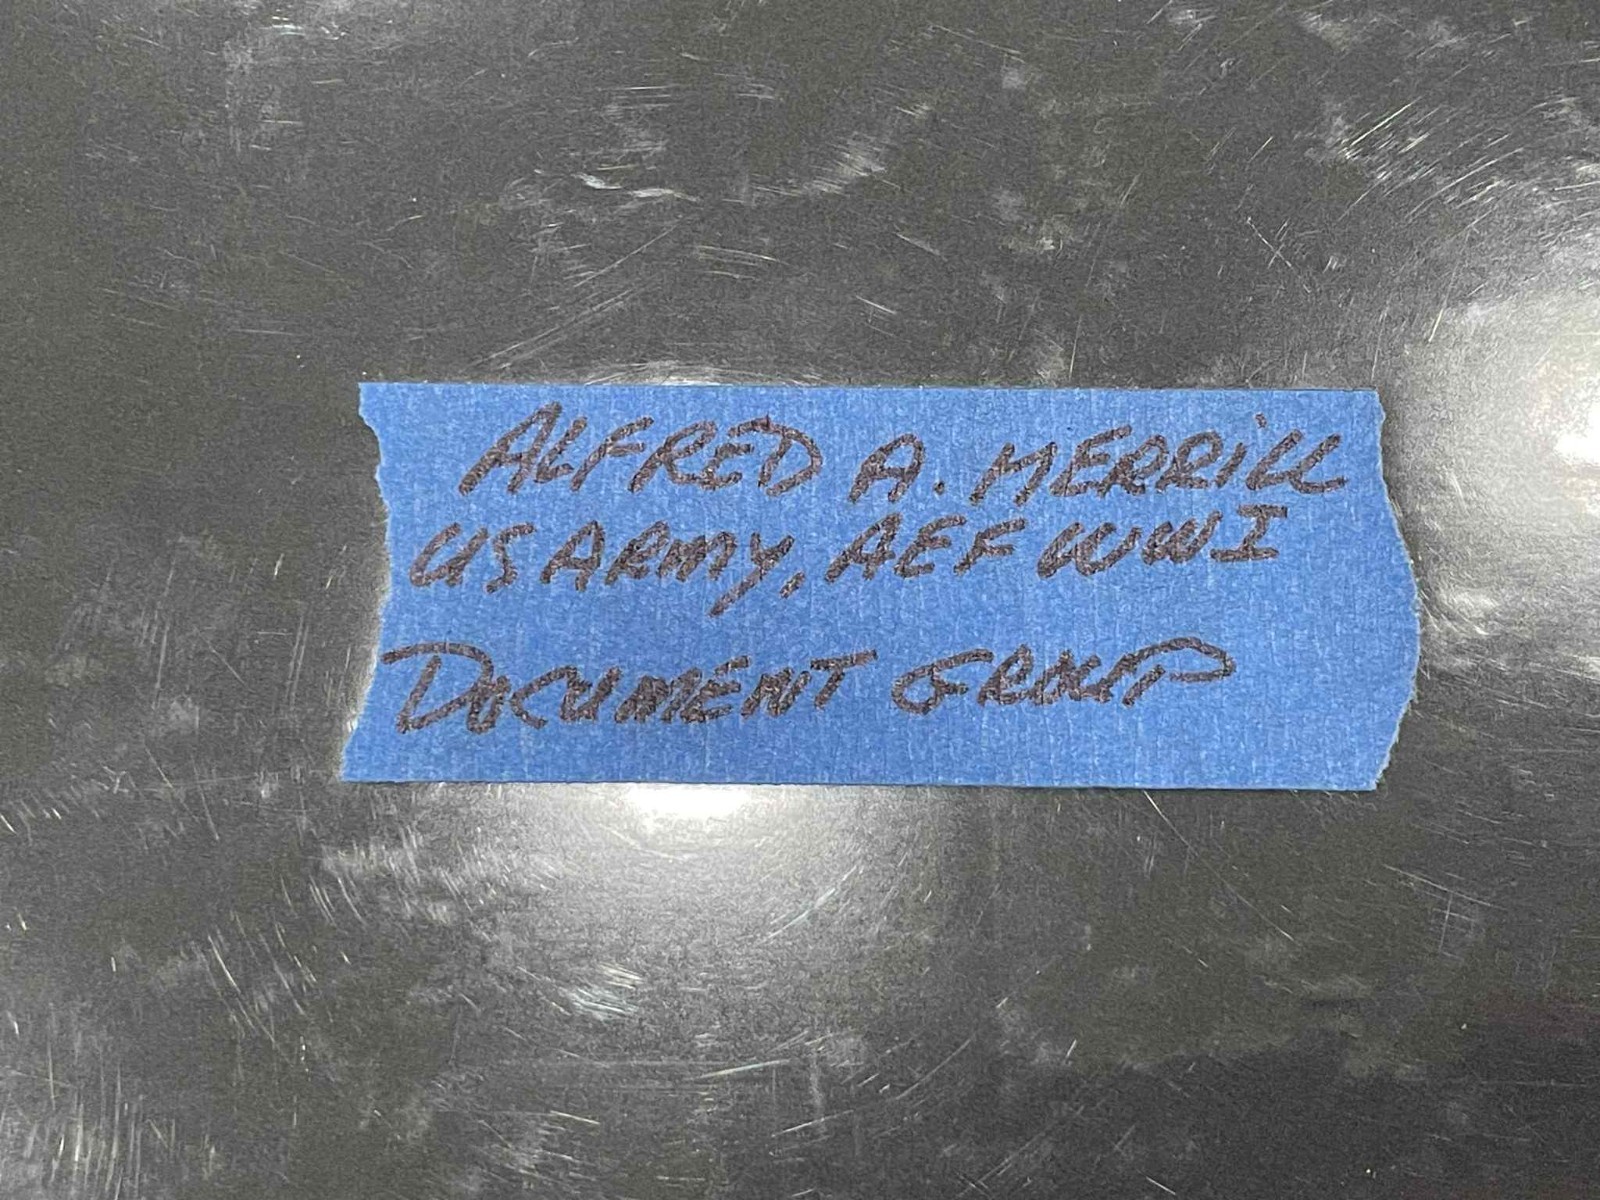 ALFRED A. MERRiLL
US ARMY, AEF WWI
DOCUMENT GROUP